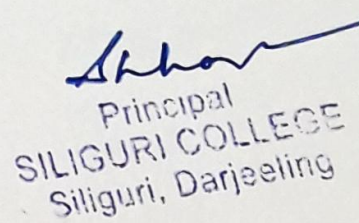 Principal
SILIGURI COLLEGE
Siliguri, Darjeeling